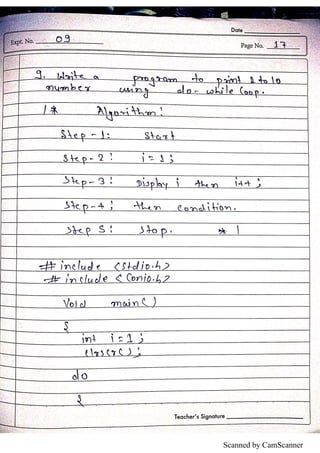 Date
Expt. No. 09
Page No. 17
9. Write a program to print 1 to 10
number using do - while loop.
/* Algorithm:
Step - 1: Start
Step - 2: i = 1;
Step - 3: Display i then i++;
Step - 4: then condition.
Step 5: Stop. */
# include <stdio.h>
# include <conio.h>
Void main()
{
int i = 1;
clrscr();
do
{
Teacher's Signature
Scanned by CamScanner